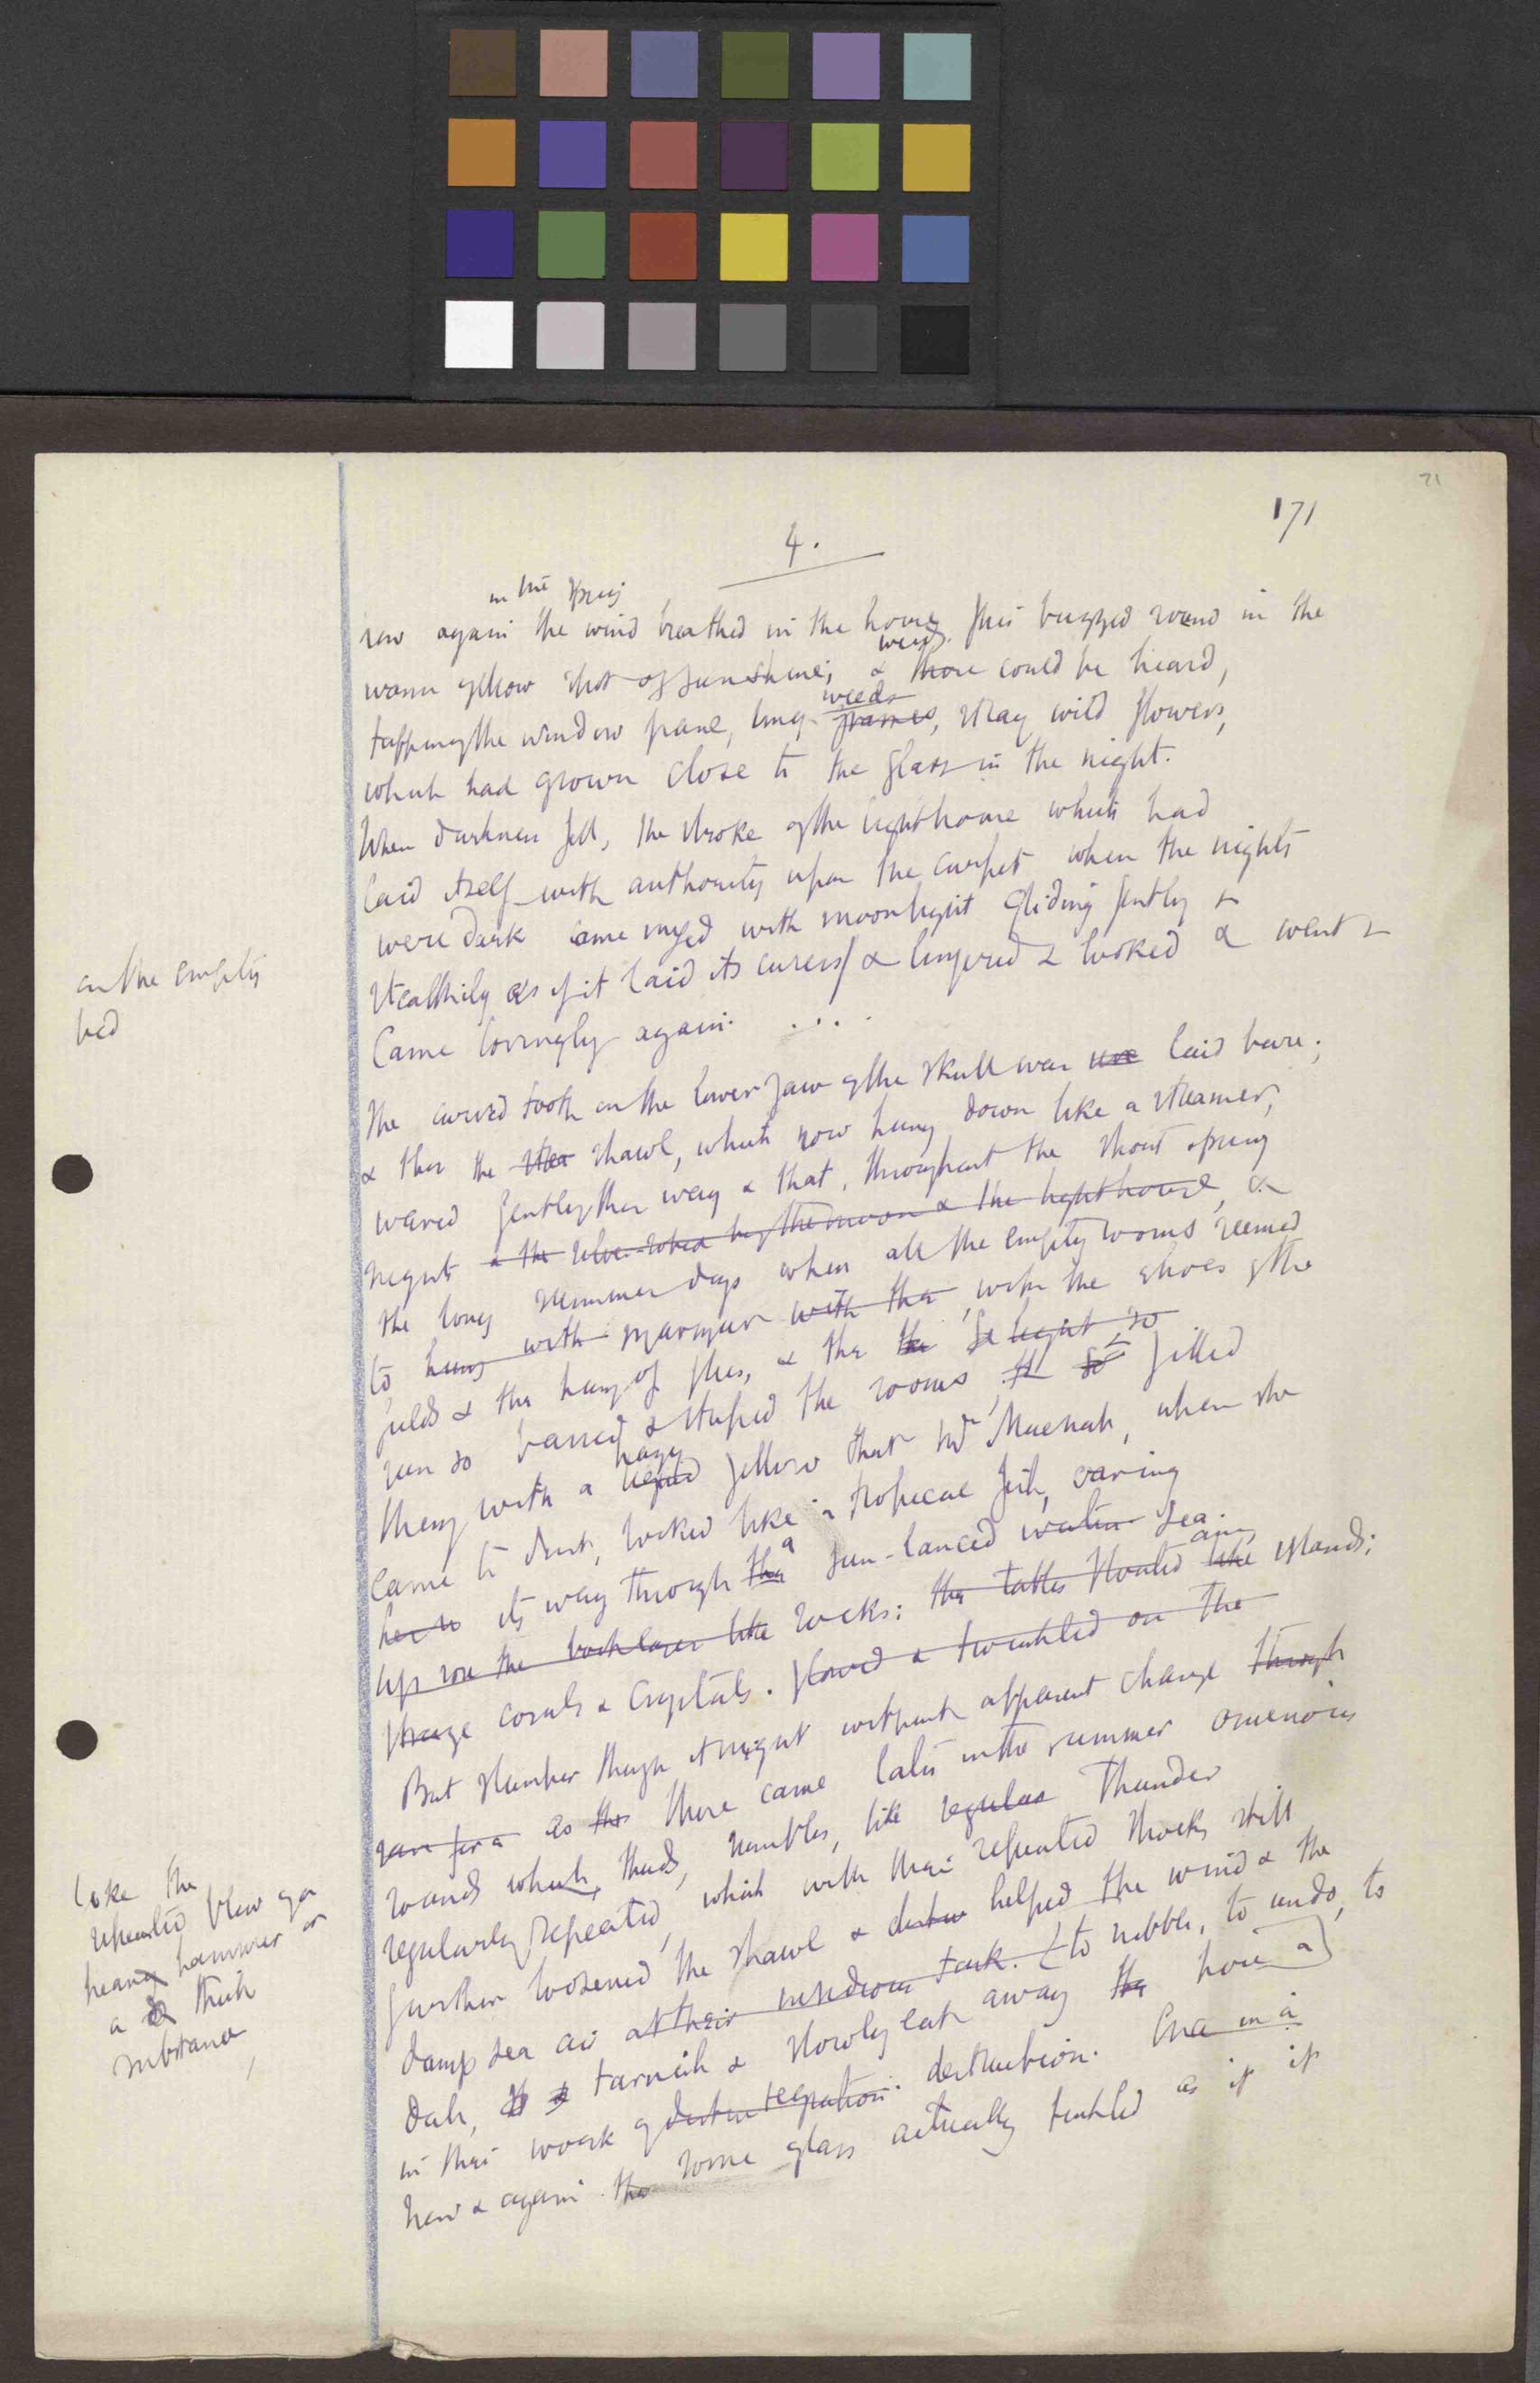 71
171
4.
in the spring
now again the wind breathed in the house flies buzzed round in the
weeds
warm yellow spot of sunshine; & there could be heard,
weeds
tapping the window pane, long grasses, stray wild flowers,
which had grown close to the glass in the night.
When darkness fell, the stroke of the lighthouse which had
laid itself with authority upon the carpet when the nights
were dark came mixed with moonlight gliding gently &
stealthily as if it laid its caress & lingered & looked & went &
on the empty
bed
came lovingly again. ....
The curved tooth on the lower jaw of the skull was laid bare;
& then the shawl, which now hung down like a streamer,
waved gently this way & that, throughout the short spring
nights & the silver robed by the moon & the lighthouse, &
the long summer days when all the empty rooms seemed
to hum with murmur with the with the echoes of the
fields & the hum of flies, & the the light, so
sun so barred & striped the rooms, filled
hazy
them with a liquid yellow that Mrs MacNab, when she
came to dust, looked like a tropical fish, oaring
a
its way through the sun-lanced water sea.
any
up rose the bookcases like rocks: the tables floated like islands;
strange corals & crystals. glowed & twinkled on the
But slumber though it might without apparent change through
as the there came later in the summer ominous
sounds which, thuds, rumbles, like regular Thunder
Like the
repeated blow of a
heavy hammer on
a thick
substance,
regularly repeated, which with their repeated shocks still
further loosened the shawl & helped the wind & the
damp sea air at their task. (to nibble, to undo, to
tarnish & slowly eat away the
in their work of destruction. Once in a
now & again the some glass actually tinkled as if it